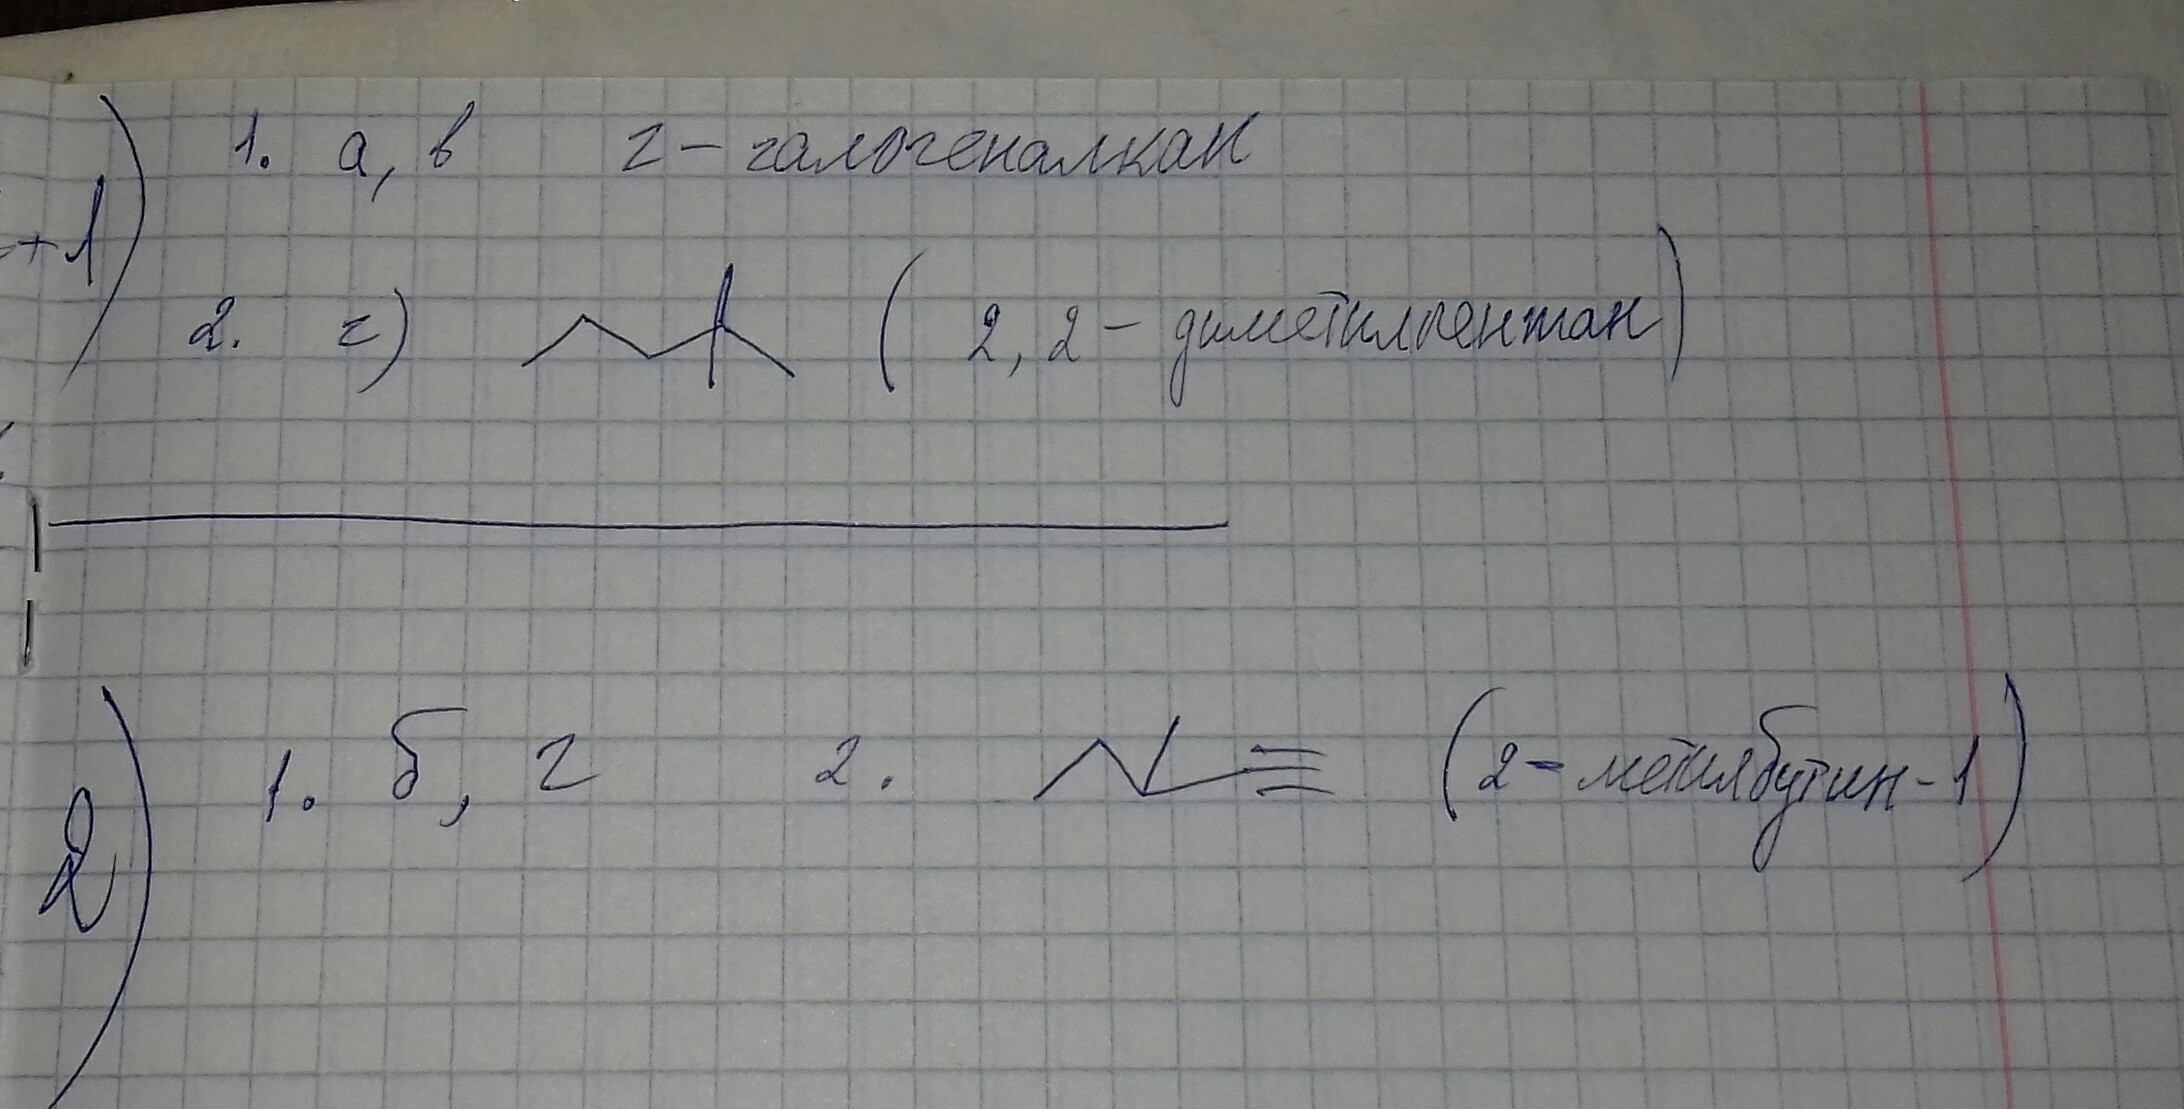 1) 1. а, в г – галогеналкан
2. г) (2, 2 – диметилпентан)
2) 1. б, г 2. (2 – метилбутин – 1)